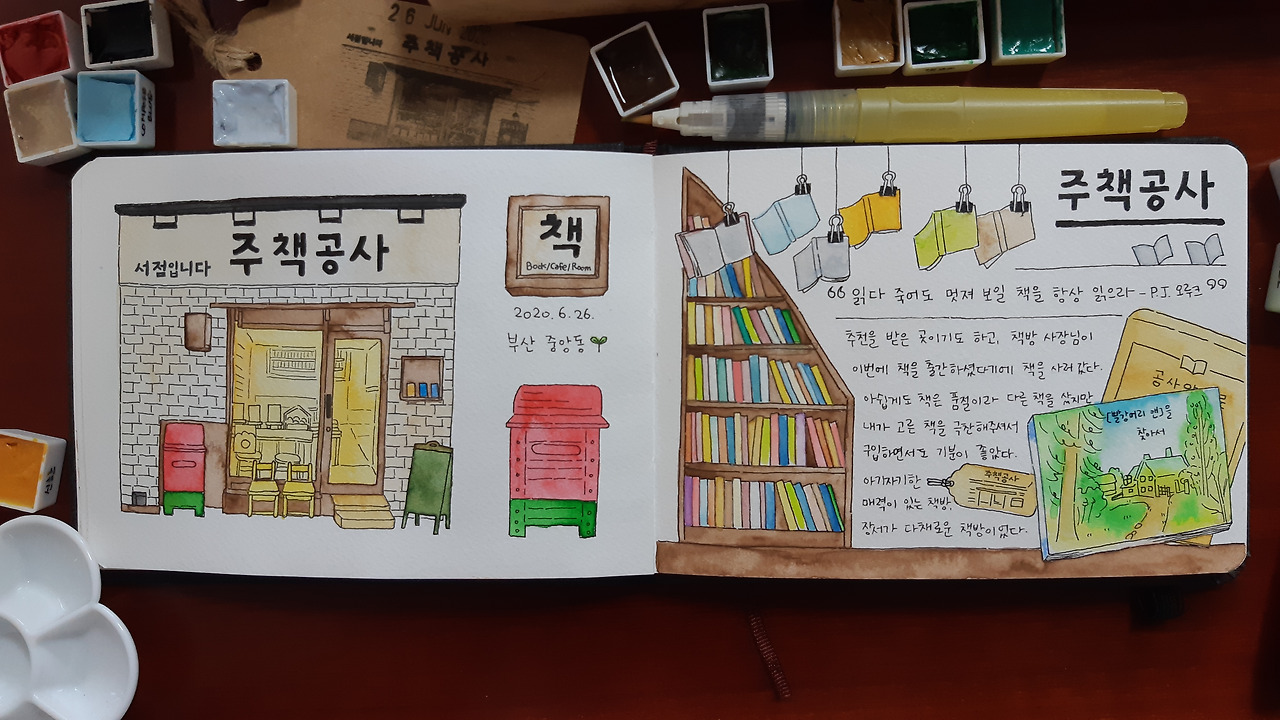 26 JUN
서점입니다 주책공사
주책공사
서점입니다
책
Book/Cafe/Room
2020. 6. 26.
부산 중앙동
주책공사
“ 읽다 죽어도 멋져 보일 책을 항상 읽으라 - P.J. 오루크 ”
추천을 받은 곳이기도 하고, 책방 사장님이
이번에 책을 출간하셨다기에 책을 사러 갔다.
아쉽게도 책은 품절이라 다른 책을 샀지만
내가 고른 책을 극찬해주셔서
구입하면서도 기분이 좋았다.
아기자기한
매력이 있는 책방,
장서가 다채로운 책방이었다.
주책공사
공사
[빨강머리 앤]을
찾아서